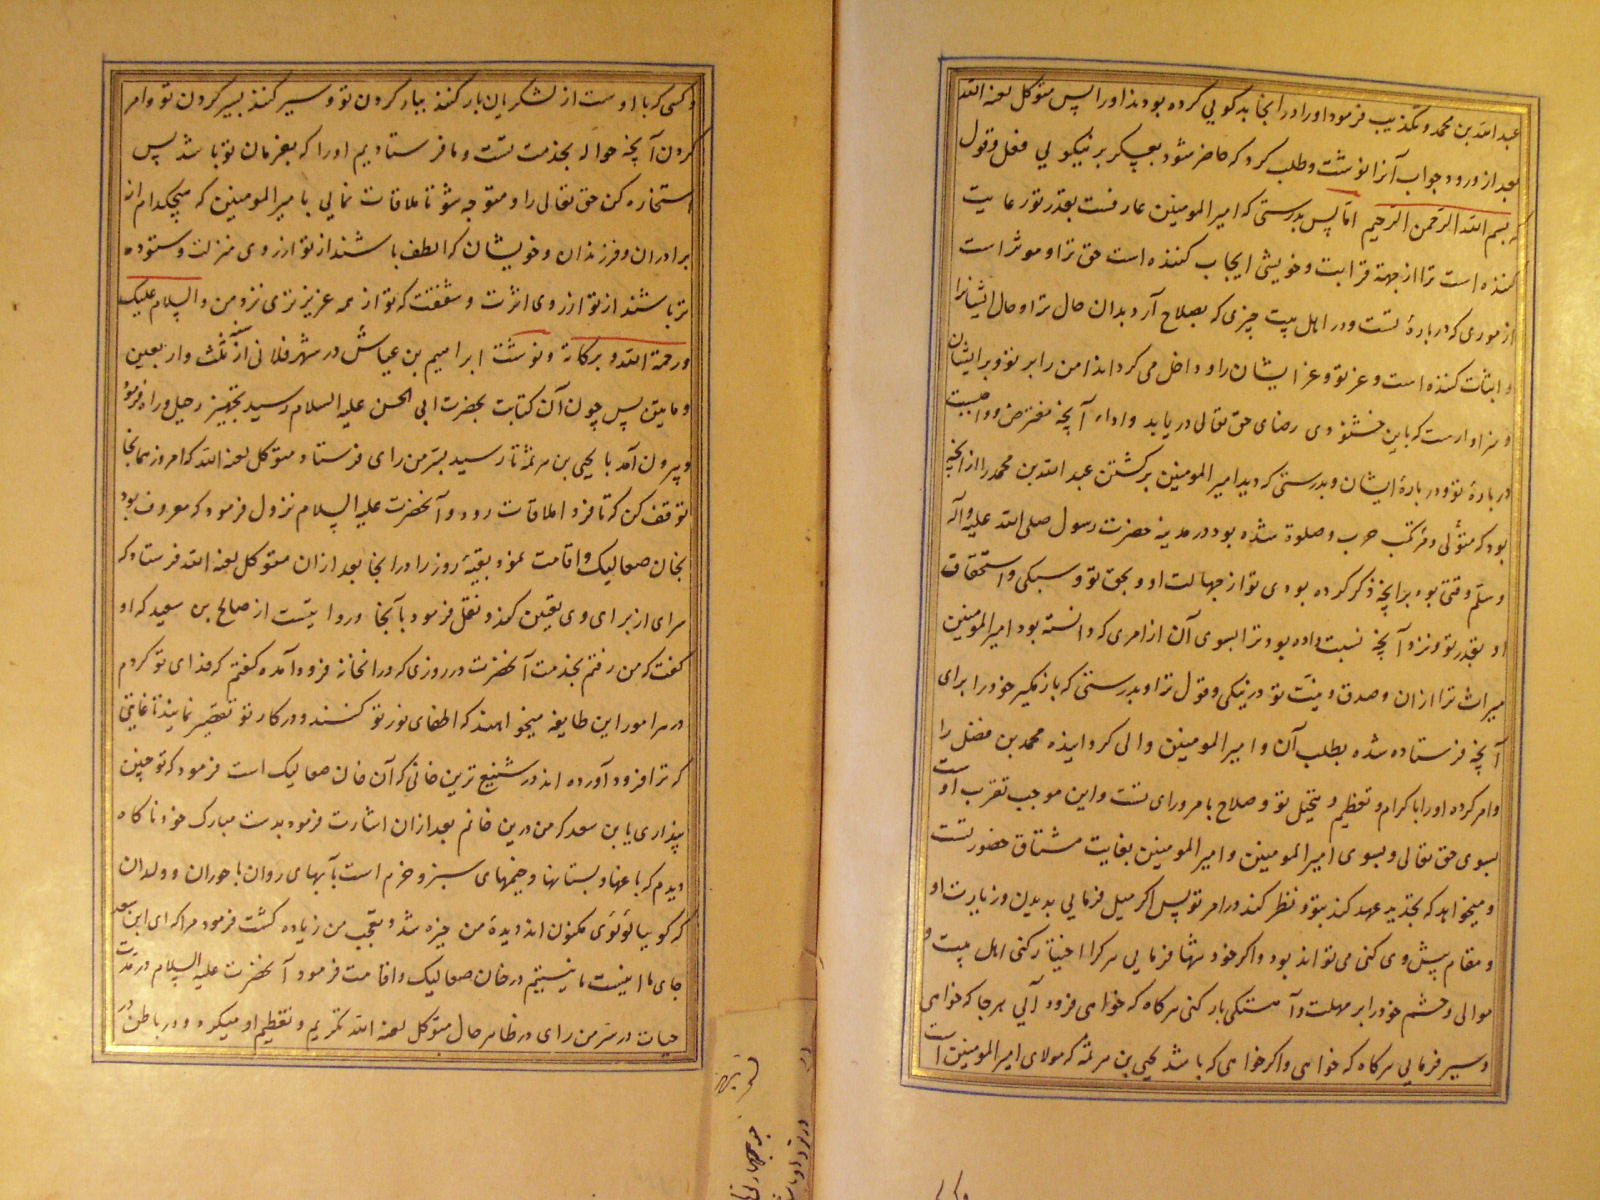 عبد الله بن محمد و تکذیب فرمود او را در آنجا بدگویی کرده بودند او را پس متوکل لعنه الله
بعد از ورود جواب آنرا نوشت و طلب کرد که حاضر شود بعسکر بر نیکویی فعل و قول
که بسم الله الرحمن الرحیم اما پس بدرستی که امیر المومنین عارفست بقدر تو رعایت
کننده است ترا از جهة قرابت و خویشی ایجاب کننده است حق ترا و موثر است
از موری که در باره تست و در اهل بیت چیزی که بصلاح آرد بدان حال ترا و حال ایشانرا
و اثبات کننده است و عز تو و عز ایشان را و داخل می گرداند امن را بر تو و بر ایشان
و سزاوارست که باین خشنودی رضای حق تعالی دریابد و اداء آنچه مفترض و واجبست
در باره تو و در بارۀ ایشان و بدرستی که دید امیر المومنین برگشتن عبد الله بن محمد را از آنچه
بود که متولی و مرتکب حرب و صلوة شده بود در مدینه حضرت رسول صلی الله علیه و آله
و سلم وقتی بود بر آنچه ذکر کرده بودی تو از جهالت او و بحق تو و سبکی و استحقاق
او بقدر تو و نزد آنچه نسبت داده بود ترا بسوی آن از امری که دانسته بود امیر المومنین
میراث ترا از ان و صدق و نیت تو در نیکی و قول ترا و بدرستی که باز مگیر خود را برای
آنچه فرستاده شده بطلب آن و امیر المومنین والی گردانیده محمد بن فضل را
و امر کرده او را باکرام و تعظیم و تبجیل تو و صلاح بامر و رای تست و این موجب تقرب اوست
بسوی حق تعالی و بسوی امیر المومنین و امیر المومنین بغایت مشتاق حضور تست
و میخواهد که تجدید عهد کند بتو و نظر کند در امر تو پس اگر میل فرمایی بدیدن و زیارت او
و مقام پیش وی کنی می تواند بود و اگر خود تنها فرمایی هر کرا اختیار کنی اهل بیت و
موالی و حشم خود را بر مهلت و آهستگی بار کنی هرگاه که خواهی فرود آیی هر جا که خواهی
و سیر فرمایی هرگاه که خواهی و اگر خواهی که باشد یحیی بن هرثمه که مولای امیر المومنین است
و کسی که با اوست از لشکریان بار کنند ببار کردن تو و سیر کنند بسیر کردن تو و امر
کردن آنچه حواله بخدمت تست و ما فرستادیم او را که بفرمان تو باشد پس
استخاره کن حق تعالی را و متوجه شو تا ملاقات نمایی با امیر المومنین که هیچکدام از
برادران و فرزندان و خویشان که الطف باشند از تو از روی منزلت و ستوده
تر باشند از تو از روی اثرت و شفقت که تو از همه عزیز تری نزد من و السلام علیک
و رحمة الله و برکاته و نوشت ابراهیم بن عباس در شهر فلانی از سنه ثلث و اربعین
و مایتین پس چون آن کتابت بحضرت ابی الحسن علیه السلام رسید تجهیز رحیل و راه فرمود
و بیرون آمد با یحیی بن هرثمه تا رسید بسر من رای فرستاد متوکل لعنه الله که امروز همانجا
توقف کن که تا فردا ملاقات رود و آنحضرت علیه السلام نزول فرمود که معروف بود
بخان صعالیک و اقامت نمود بقیۀ روز را در آنجا بعد از ان متوکل لعنه الله فرستاد که
سرای از برای وی یقین کند و نقل فرمود بآنجا و روایتست از صالح بن سعید که او
گفت که من رفتم بخدمت آنحضرت در روزی که در انخانه فرود آمده گفتم که فدای تو گردم
در هر امور این طایفه میخواهند که اطفای نور تو کنند و در کار تو تقصیر نمایند تا غایتی
که ترا فرود آورده اند در شنیع ترین خانی که آن خان صعالیک است فرمود که تو چنین
پنداری یا بن سعد که من درین خانم بعد از ان اشارت فرمود بدست مبارک خود ناگاه
دیدم که باغها و بستانها و چمنهای سبز و خرم است بآبهای روان با حوران و ولدان
که گوییا لؤلؤی مکنون اند دیدۀ من خیره شد و تعجب من زیاده گشت فرمود مرا که ای ابن سعد
جای ما اینست ما نیستیم در خان صعالیک و اقامت فرمود آنحضرت علیه السلام در مدت
حیات در سر من رای در ظاهر حال متوکل لعنه الله تکریم و تعظیم او میکرد و در باطن در